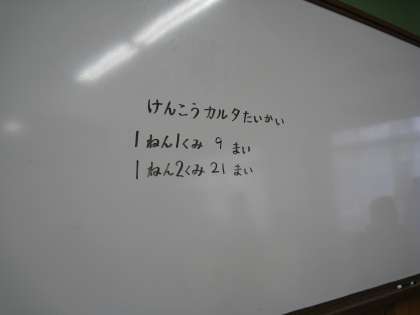 けんこうカルタたいかい
1ねん1くみ 9 まい
1ねん2くみ 21 まい